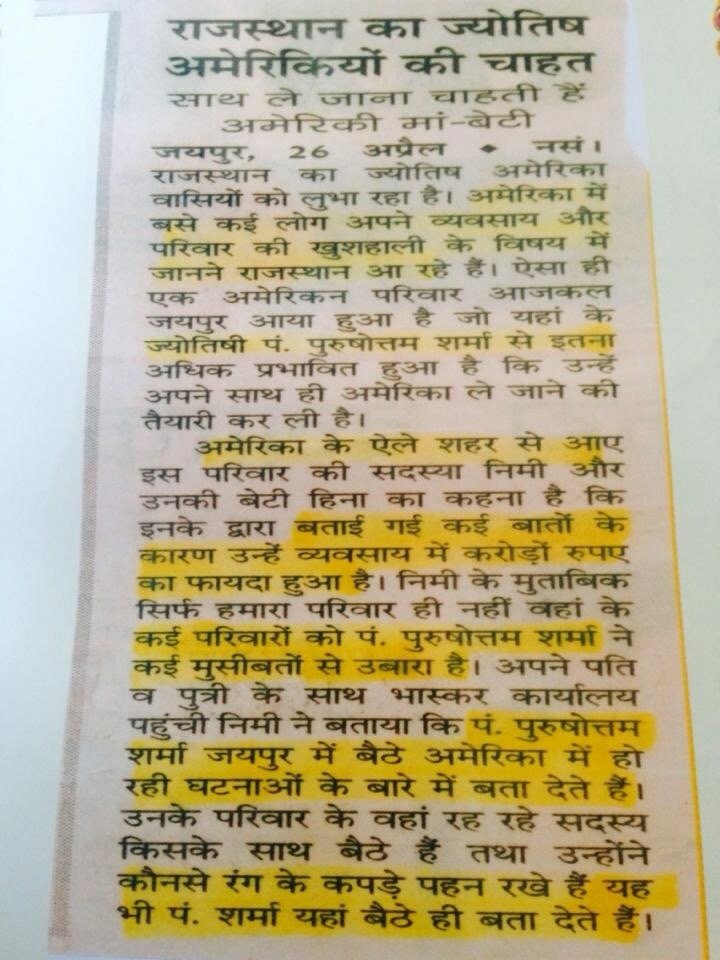 राजस्थान का ज्योतिष
अमेरिकियों की चाहत
साथ ले जाना चाहती हैं
अमेरिकी मां-बेटी
जयपुर, 26 अप्रैल • नसं।
राजस्थान का ज्योतिष अमेरिका
वासियों को लुभा रहा है। अमेरिका में
बसे कई लोग अपने व्यवसाय और
परिवार की खुशहाली के विषय में
जानने राजस्थान आ रहे हैं। ऐसा ही
एक अमेरिकन परिवार आजकल
जयपुर आया हुआ है जो यहां के
ज्योतिषी पं. पुरुषोत्तम शर्मा से इतना
अधिक प्रभावित हुआ है कि उन्हें
अपने साथ ही अमेरिका ले जाने की
तैयारी कर ली है।
अमेरिका के ऐले शहर से आए
इस परिवार की सदस्या निमी और
उनकी बेटी हिना का कहना है कि
इनके द्वारा बताई गई कई बातों के
कारण उन्हें व्यवसाय में करोड़ों रुपए
का फायदा हुआ है। निमी के मुताबिक
सिर्फ हमारा परिवार ही नहीं वहां के
कई परिवारों को पं. पुरुषोत्तम शर्मा ने
कई मुसीबतों से उबारा है। अपने पति
व पुत्री के साथ भास्कर कार्यालय
पहुंची निमी ने बताया कि पं. पुरुषोत्तम
शर्मा जयपुर में बैठे अमेरिका में हो
रही घटनाओं के बारे में बता देते हैं।
उनके परिवार के वहां रह रहे सदस्य
किसके साथ बैठे हैं तथा उन्होंने
कौनसे रंग के कपड़े पहन रखे हैं यह
भी पं. शर्मा यहां बैठे ही बता देते हैं।